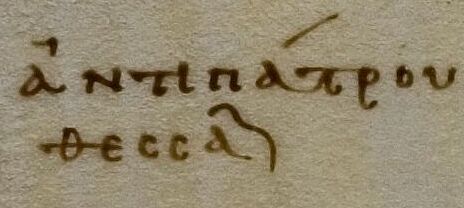 ἀντιπάτρου
θεσσα